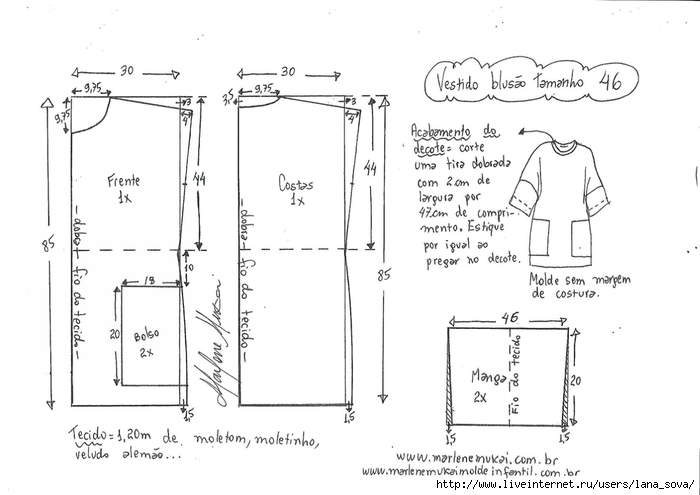 Vestido blusão tamanho 46
30
9,75
9,75
3
4
44
85
Frente
1x
- dobra - fio do tecido -
10
18
20
Bolso
2x
1,5
Marlene Mukai
30
9,75
3,5
3
4
44
85
Costas
1x
- dobra - fio do tecido -
1,5
Acabamento do
decote = corte
uma tira dobrada
com 2 cm de
largura por
47cm de compri-
mento. Estique
por igual ao
pregar no decote.
Molde sem margem
de costura.
46
Manga
2x
Fio do tecido
20
1,5
1,5
Tecido = 1,20m de moletom, moletinho,
veludo alemão...
www.marlenemukai.com.br
www.marlenemukaimoldeinfantil.com.br
http://www.liveinternet.ru/users/lana_sova/